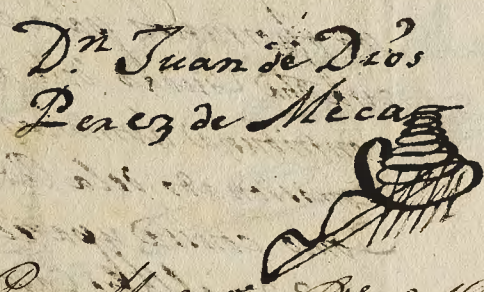 D.n Juan de Dios
Perez de Meca